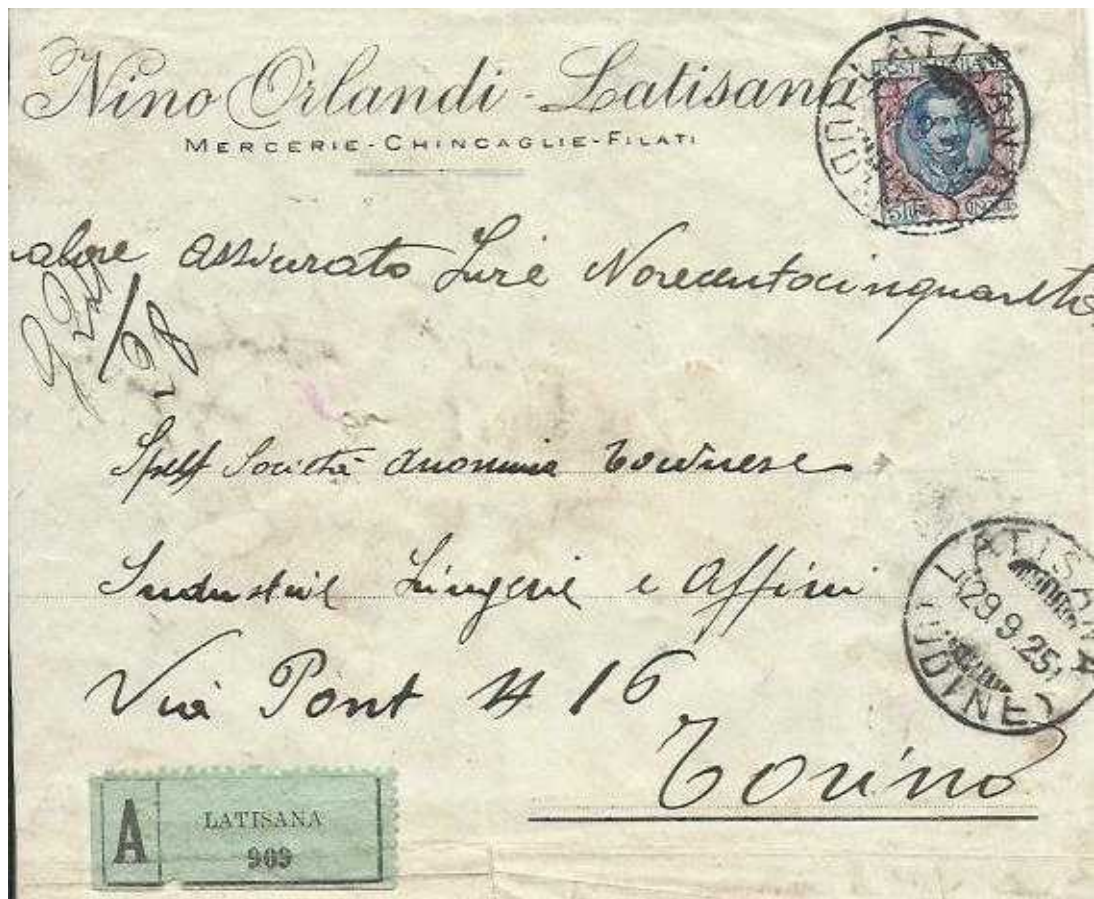 Nino Orlandi - Latisana
MERCERIE - CHINCAGLIE - FILATI
LATISANA
UDINE
valore assicurato Lire Novecentocinquanta
Spett Società Anonima Torinese
Industrie Lingerie e Affini
LATISANA
29.9.25
(UDINE)
Via Pont N 16
Torino
A
LATISANA
909